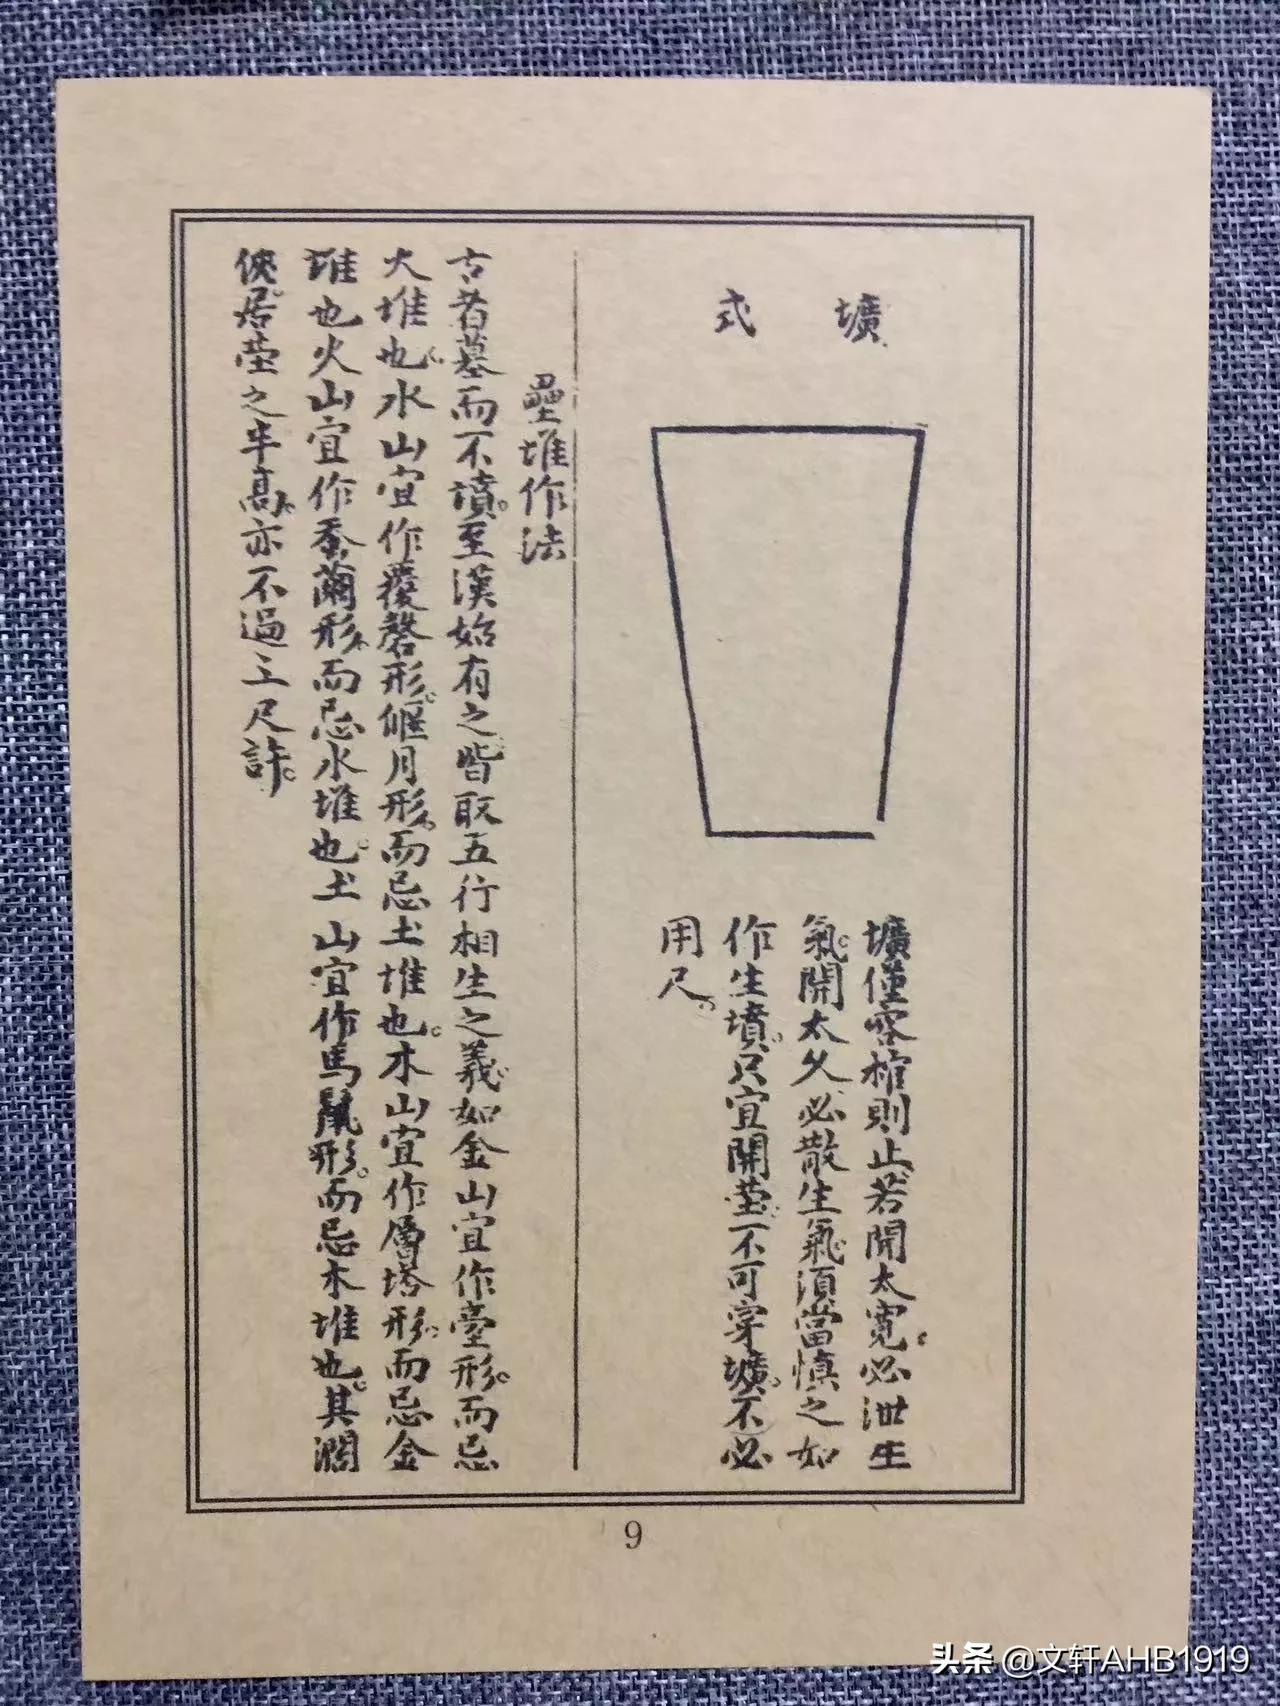 壙式
壙僅容棺則止若開太寬必泄生
氣開太久必散生氣須當慎之如
作生墳只宜開塋不可穿壙不必
用尺
壘堆作法
古者墓而不墳至漢始有之皆取五行相生之義如金山宜作臺形而忌
火堆也水山宜作覆磬形偃月形而忌土堆也木山宜作層塔形而忌金
堆也火山宜作蚕繭形而忌水堆也土山宜作馬鬣形而忌木堆也其濶
俠居塋之半高亦不過三尺許
9
头条 @文轩AHB1919